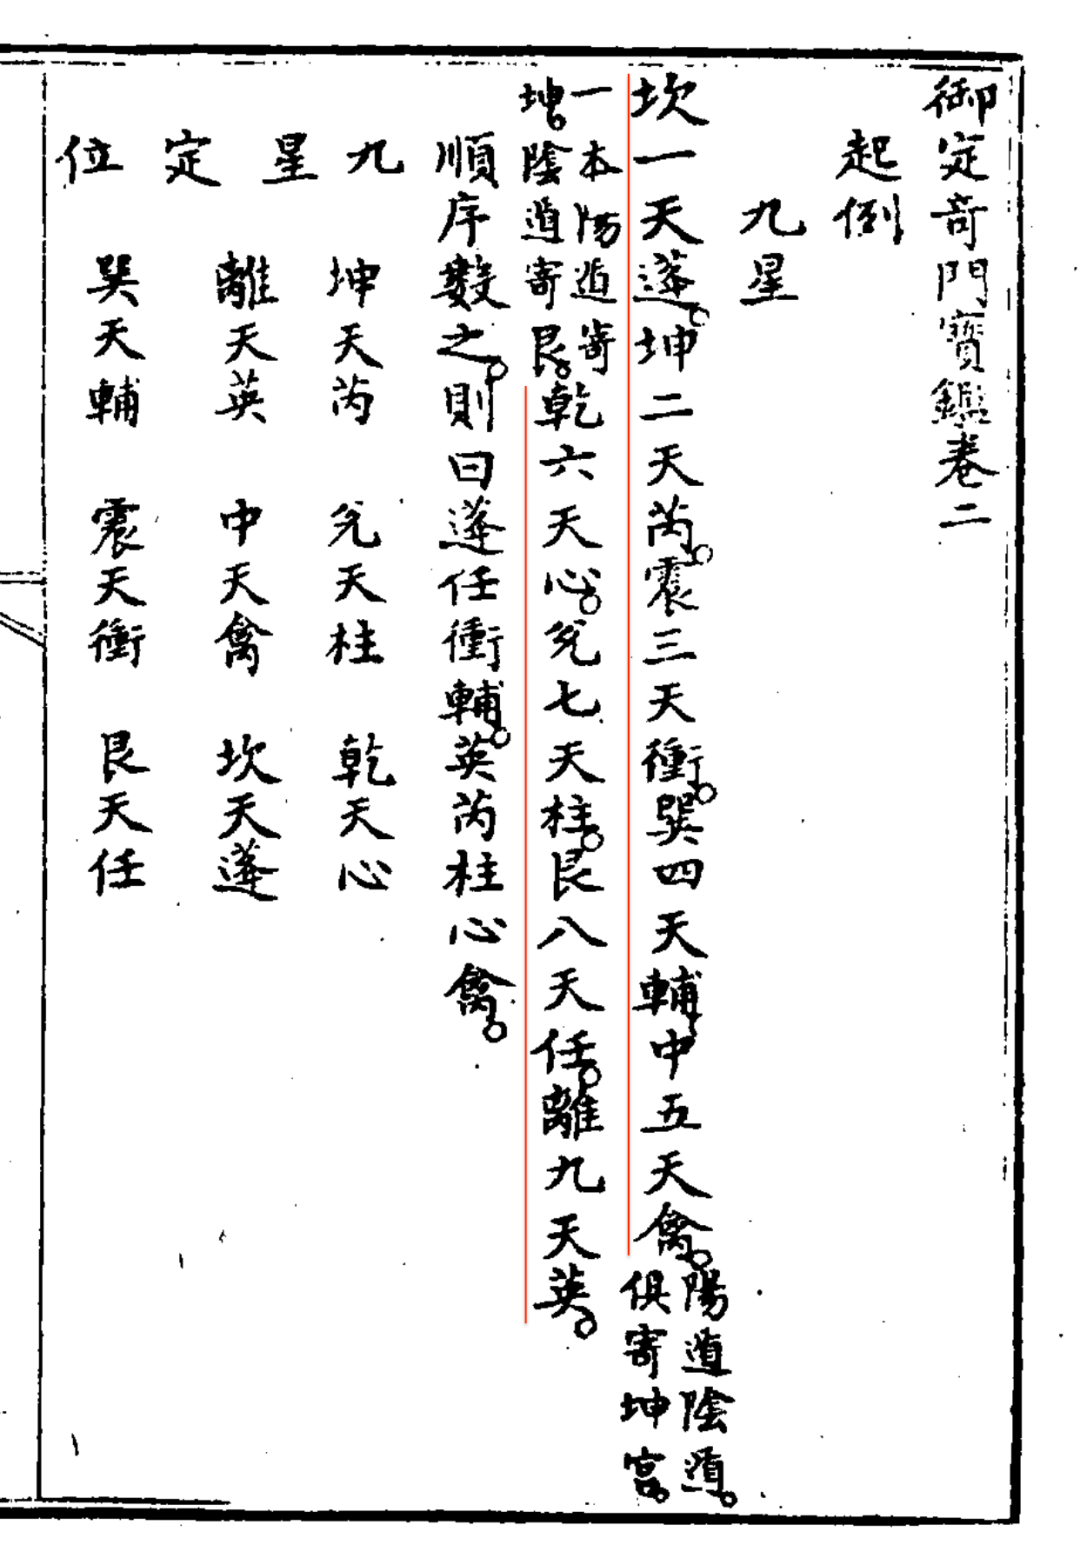 御定奇門寶鑑卷二
起例
九星
坎一天蓬。坤二天芮。震三天衝。巽四天輔中五天禽。陽遁陰遁。俱寄坤宮。
一本陽遁寄坤。陰遁寄艮。乾六天心。兊七天柱。艮八天任。離九天英。
順序數之。則曰蓬任衝輔。英芮柱心禽。
九星定位
坤天芮 兊天柱 乾天心
離天英 中天禽 坎天蓬
巽天輔 震天衝 艮天任